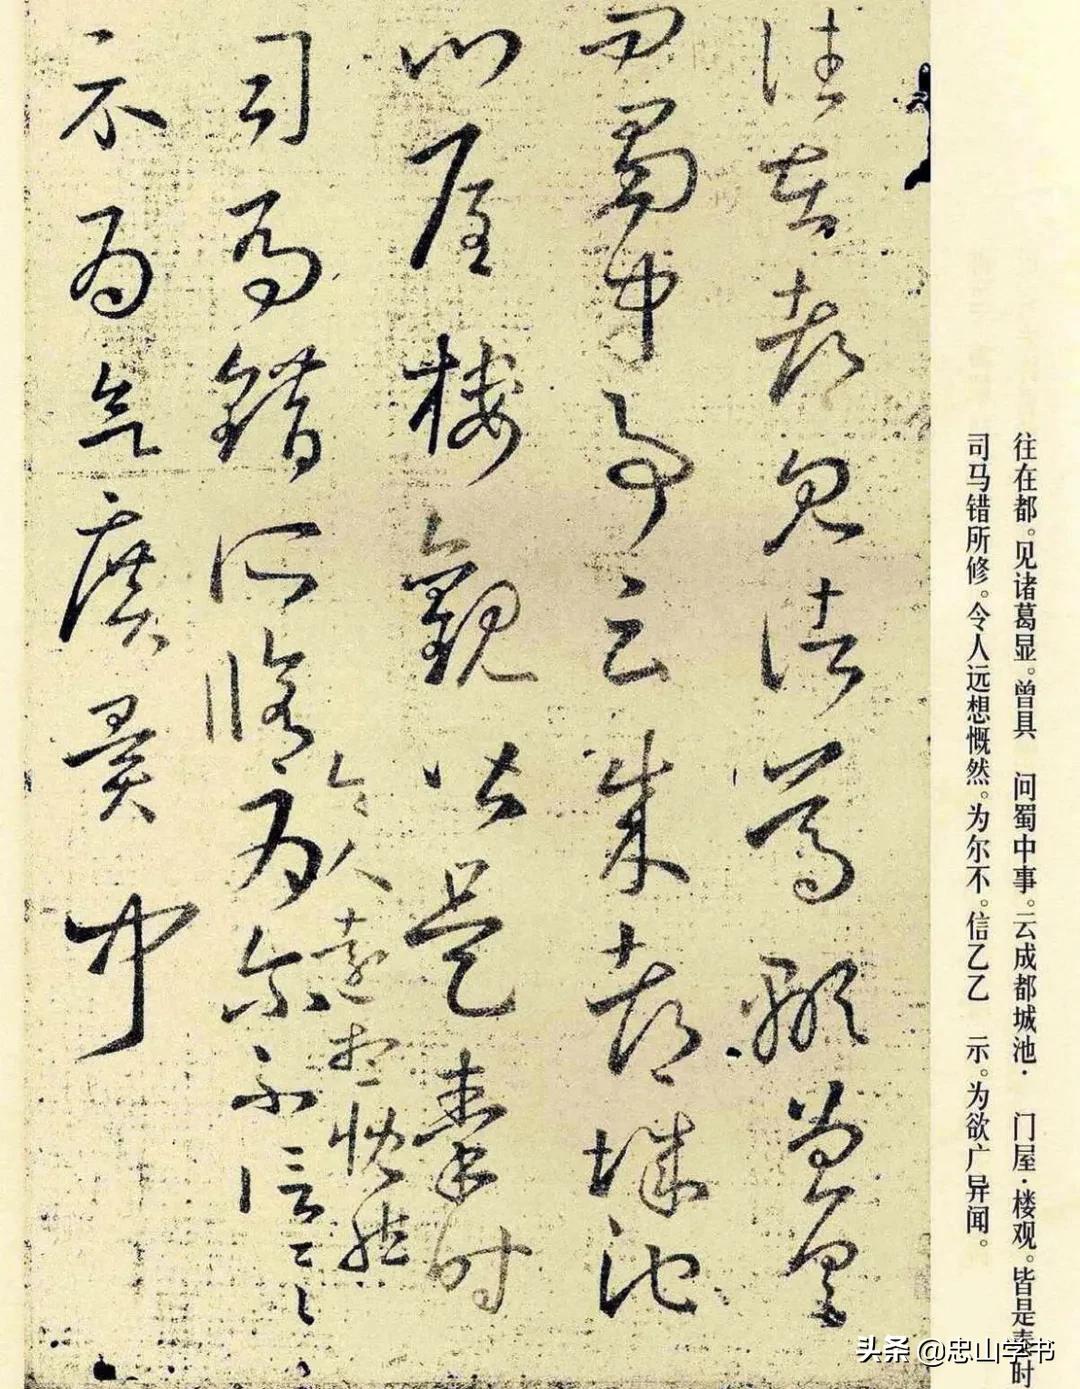 往在都。见诸葛显。曾具 问蜀中事。云成都城池· 门屋·楼观。皆是秦时
司马错所修。令人远想慨然。为尔不。信乙乙 示。为欲广异闻。
往在都見諸葛顒曾具
問蜀中事云成都城池
門屋樓觀皆是秦時
令人遠想慨然
司馬錯所脩為爾不信一一
示為欲廣異聞
头条 @忠山学书